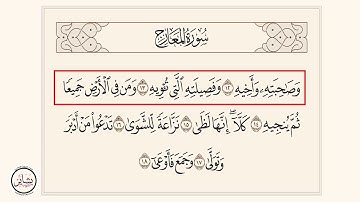 سُورَةُ المَعَارِجِ
وَصَٰحِبَتِهِۦ وَأَخِيهِ ۝١٢ وَفَصِيلَتِهِ ٱلَّتِي تُـٔۡوِيهِ ۝١٣ وَمَن فِي ٱلۡأَرۡضِ جَمِيعٗا
ثُمَّ يُنجِيهِ ۝١٤ كَلَّآۖ إِنَّهَا لَظَىٰ ۝١٥ نَزَّاعَةٗ لِّلشَّوَىٰ ۝١٦ تَدۡعُواْ مَنۡ أَدۡبَرَ
وَتَوَلَّىٰ ۝١٧ وَجَمَعَ فَأَوۡعَىٰٓ ۝١٨